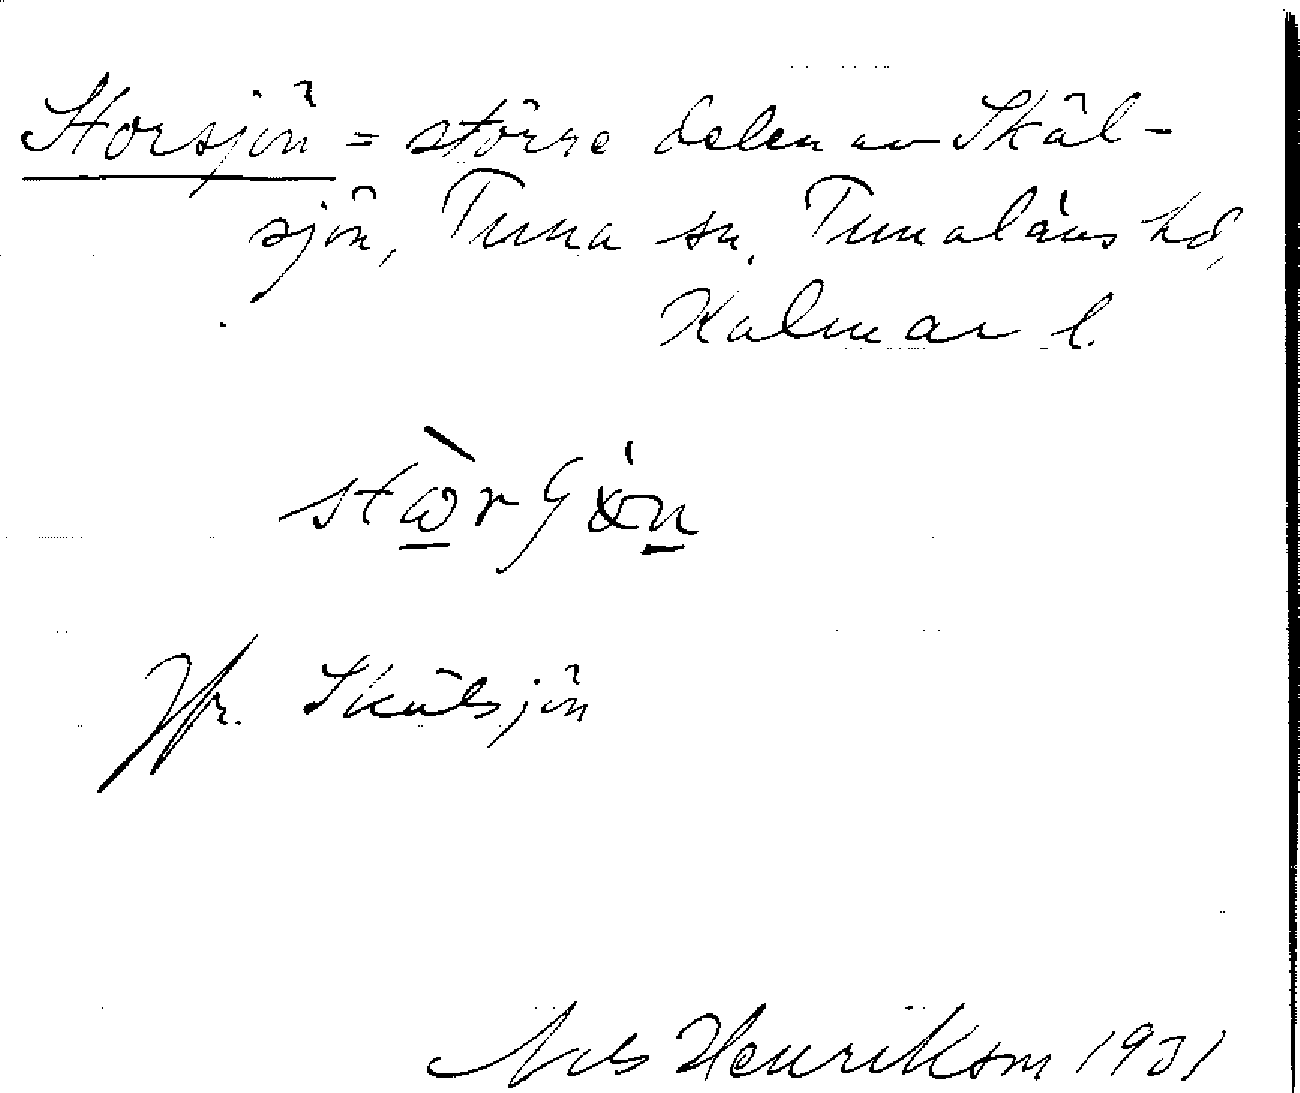 Storsjön = större delen av Skäl-
sjön, Tuna sn, Tunaläns hd,
Kalmar l.
Jfr. Skälsjön
Nils Henrikson 1931